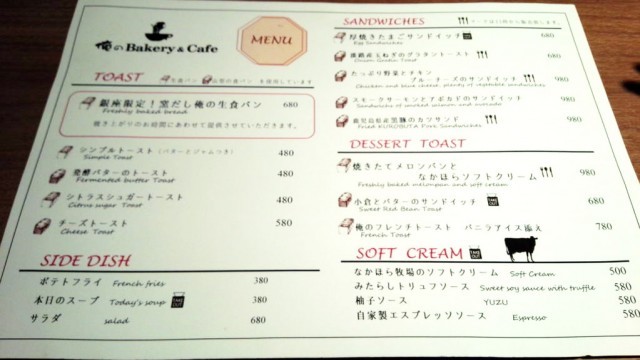 俺のBakery & Cafe
MENU
TOAST
銀座限定！窯だし俺の生食パン 680
Freshly baked bread
焼き上がりのお時間にあわせて提供させていただきます。
シンプルトースト（バターとジャムつき） 480
Simple Toast
発酵バターのトースト 480
Fermented butter Toast
シトラスシュガートースト 480
Citrus sugar Toast
チーズトースト 580
Cheese Toast
SIDE DISH
ポテトフライ French fries 380
本日のスープ Today's soup 380
サラダ salad 680
SANDWICHES
厚焼きたまごサンドイッチ 680
Egg Sandwiches
淡路産玉ねぎのグラタントースト 680
Onion Gratin Toast
たっぷり野菜とチキン
ブルーチーズのサンドイッチ 980
Chicken and blue cheese, plenty of vegetable sandwiches
スモークサーモンとアボカドのサンドイッチ 980
Sandwiches of smoked salmon and avocado
鹿児島県産黒豚のカツサンド 980
Fried KUROBUTA Pork Sandwiches
DESSERT TOAST
焼きたてメロンパンと
なかほらソフトクリーム 980
Freshly baked melonpan and soft cream
小倉とバターのサンドイッチ 680
Sweet Red Bean Toast
俺のフレンチトースト バニラアイス添え 780
French Toast
SOFT CREAM
なかほら牧場のソフトクリーム Soft Cream 500
みたらしトリュフソース Sweet soy sauce with truffle 580
柚子ソース YUZU 580
自家製エスプレッソソース Espresso 580